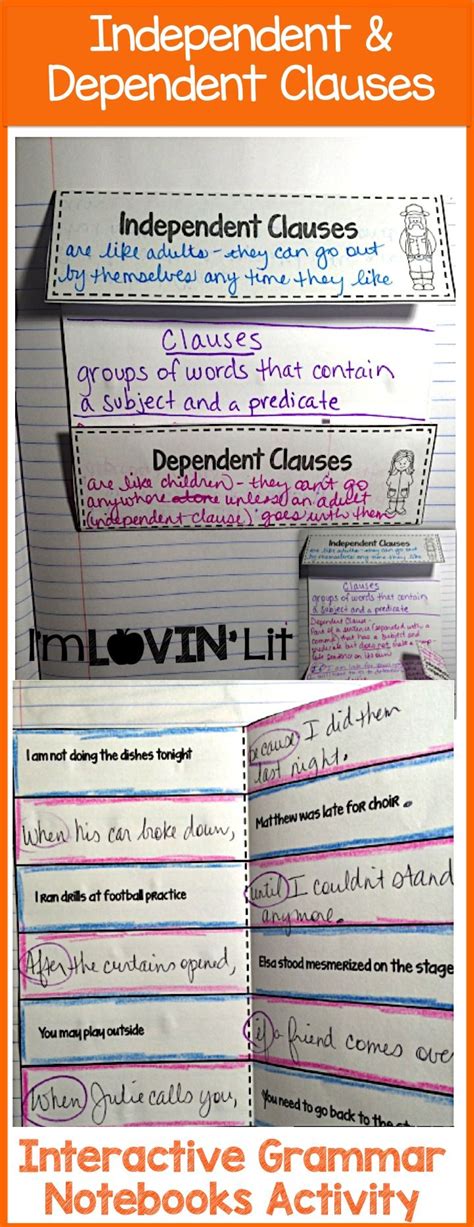 Independent &
Dependent Clauses
Independent Clauses
are like adults - they can go out
by themselves any time they like
Clauses
groups of words that contain
a subject and a predicate
Dependent Clauses
are like children - they can't go
anywhere alone unless an adult
(independent clause) goes with them
Independent Clauses
are like adults - they can go out
by themselves any time they like
Clauses
groups of words that contain
a subject and a predicate
Dependent Clause -
Part of a sentence (separated with a
comma) that has a subject and
predicate but does not
I'm LOVIN' Lit
I am not doing the dishes tonight
because I did them
last night.
When his car broke down,
Matthew was late for choir.
I ran drills at football practice
until I couldn't stand
anymore.
After the curtains opened,
Elsa stood mesmerized on the stage
You may play outside
if a friend comes over
When Julie calls you,
you need to go back to the
Interactive Grammar
Notebooks Activity